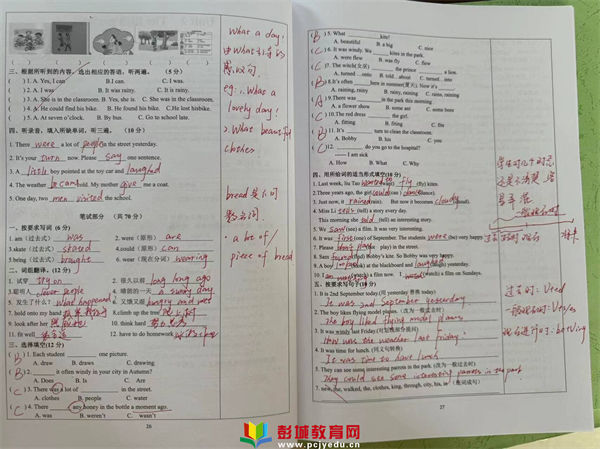 三、根据所听到的内容,选出相应的答语,听两遍。(5分)
( ) 1. A. Yes, I can B.I can. C. I was.
( ) 2. A. I was B. It was rainy. C. It is rainy.
( ) 3. A. She is in the classroom. B. Yes, she is. C. She was in the classroom.
( ) 4. A. He could find his bike. B. He found his bike. C. He lost hisbike.
( ) 5. A. At seven o'clock. B. By bus. C. Go to school late.
四、听录音,填入所缺单词,听三遍。(10分)
1. There were a lot of people in the street yesterday.
2. It's your turn now. Please say one sentence.
3. A little boy pointed at the toy car and laughed
4. The weather became cold. My mother give me a coat.
5. One day, two men visited the school.
笔试部分 (共70分)
一、按要求写词 (6分)
1. am(过去式) was 2. were(原形) are
3. (过去式) stated 4.could(原形) can
5. being(过去式) brought 6. wear(现在分词) wearing
二、词组翻译。(12分)
1. 试穿 try on 2. 很久以前 long long ago
3. 聪明人 clever people 4. 晴朗的一天 a sunny day
5. 发生了什么? what happened 6. 又饿又渴 hungry and
7. hold onto my hand 8.climb up the tree
9. look after her 10. think hard
11. fit well 12. have to do homework
三、选择填空(12分)
(B) 1. Each student one picture
A. draw B. draws C. drawing
(B) 2. it often windy in your city in Autumn?
A. Does B. Is C. Are
(C) 3. There was a lot of in the street.
A. clothes B. people C. water
(C) 4. There any honey in the bottle a moment ago.
A. was B. weren't C. wasn't
26
What a day!
由What引导的
感叹句.
eg: 1. What a
lovely day!
2. What beautiful
clothes
bread是不可
数名词
: a lot of /
piece of bread
(B) 5. What kite!
A. beautiful B. a big C. nice
(C) 6. It was windy. We kites in the park.
A. were flew B. was fly C. flew
(C) 7. The witch(女巫) the prince a lion.
A. turned…onto B. told…about C. turned…into
(B) 8.It's often here in summer(夏天). Now it's
A. raining, rainy B. rainy, raining C. rains, raining
(A) 9.There was in the park this morning
A. a flower show B. some ant C. some bore
(C) 10.The red dress the girl.
A. fitting B. fiting C. fits
(B) 11.It's turn to clean the classroom.
A. Bobby B. his C. you
(C) 12. do you go to the hospital?
—— I am sick
A. How B. What C. Why
四、用所给词的适当形式填空(10分)
2. Three years ago, the girl could (can) dance.
3. Just now, it rained (rain). But now it becomes cloudy (cloud).
4. Miss Li tells (tell) a story every day.
This morning she told (tell) an interesting story.
5. We saw (see) a film. It was very interesting.
6. It was first (one) of September. The students were (be) very happy
7. Please don't play (not play) in the street.
8. Sam found (find) Bobby's kite. So Bobby was very happy.
五、按要求写句子(14分)
1. It is 2nd September today.(用 yesterday 替换 today)
It was 2nd September yesterday
2. The boy likes flying model planes.(改为一般过去时)
The boy liked flying model planes
3. It was windy last Friday.(对划线部分提问)
How was the weather last Friday?
4. It was time for lunch.(同义句转换)
It was time to have lunch
5. They can see some interesting parrots in the park.(改为一般过去时)
They could see some interesting parrots in the park.
7. new, the, walked, the, clothes, king, through, city, his, in (连词成句)
27
一般现在时
过去 现在 将来
过去时: V+ed
一般现在时: V+s/es
现在进行时: be+ving
彭城教育网
www.pcjyedu.cn